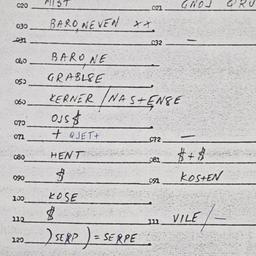 020 MIST 021 GNOJ
030 BARO, NEVEN xx
031 032 —
040 BARO, NE
050 GRABLJE
060 KERNER / NASTENSE
070 OJS $
071 + QJET+ 072 —
080 HENT 081 $+$
090 $ 091 KOSTEN
100 KOSE
110 $ 111 VILE /—
120 ) SERP ) = SERPE